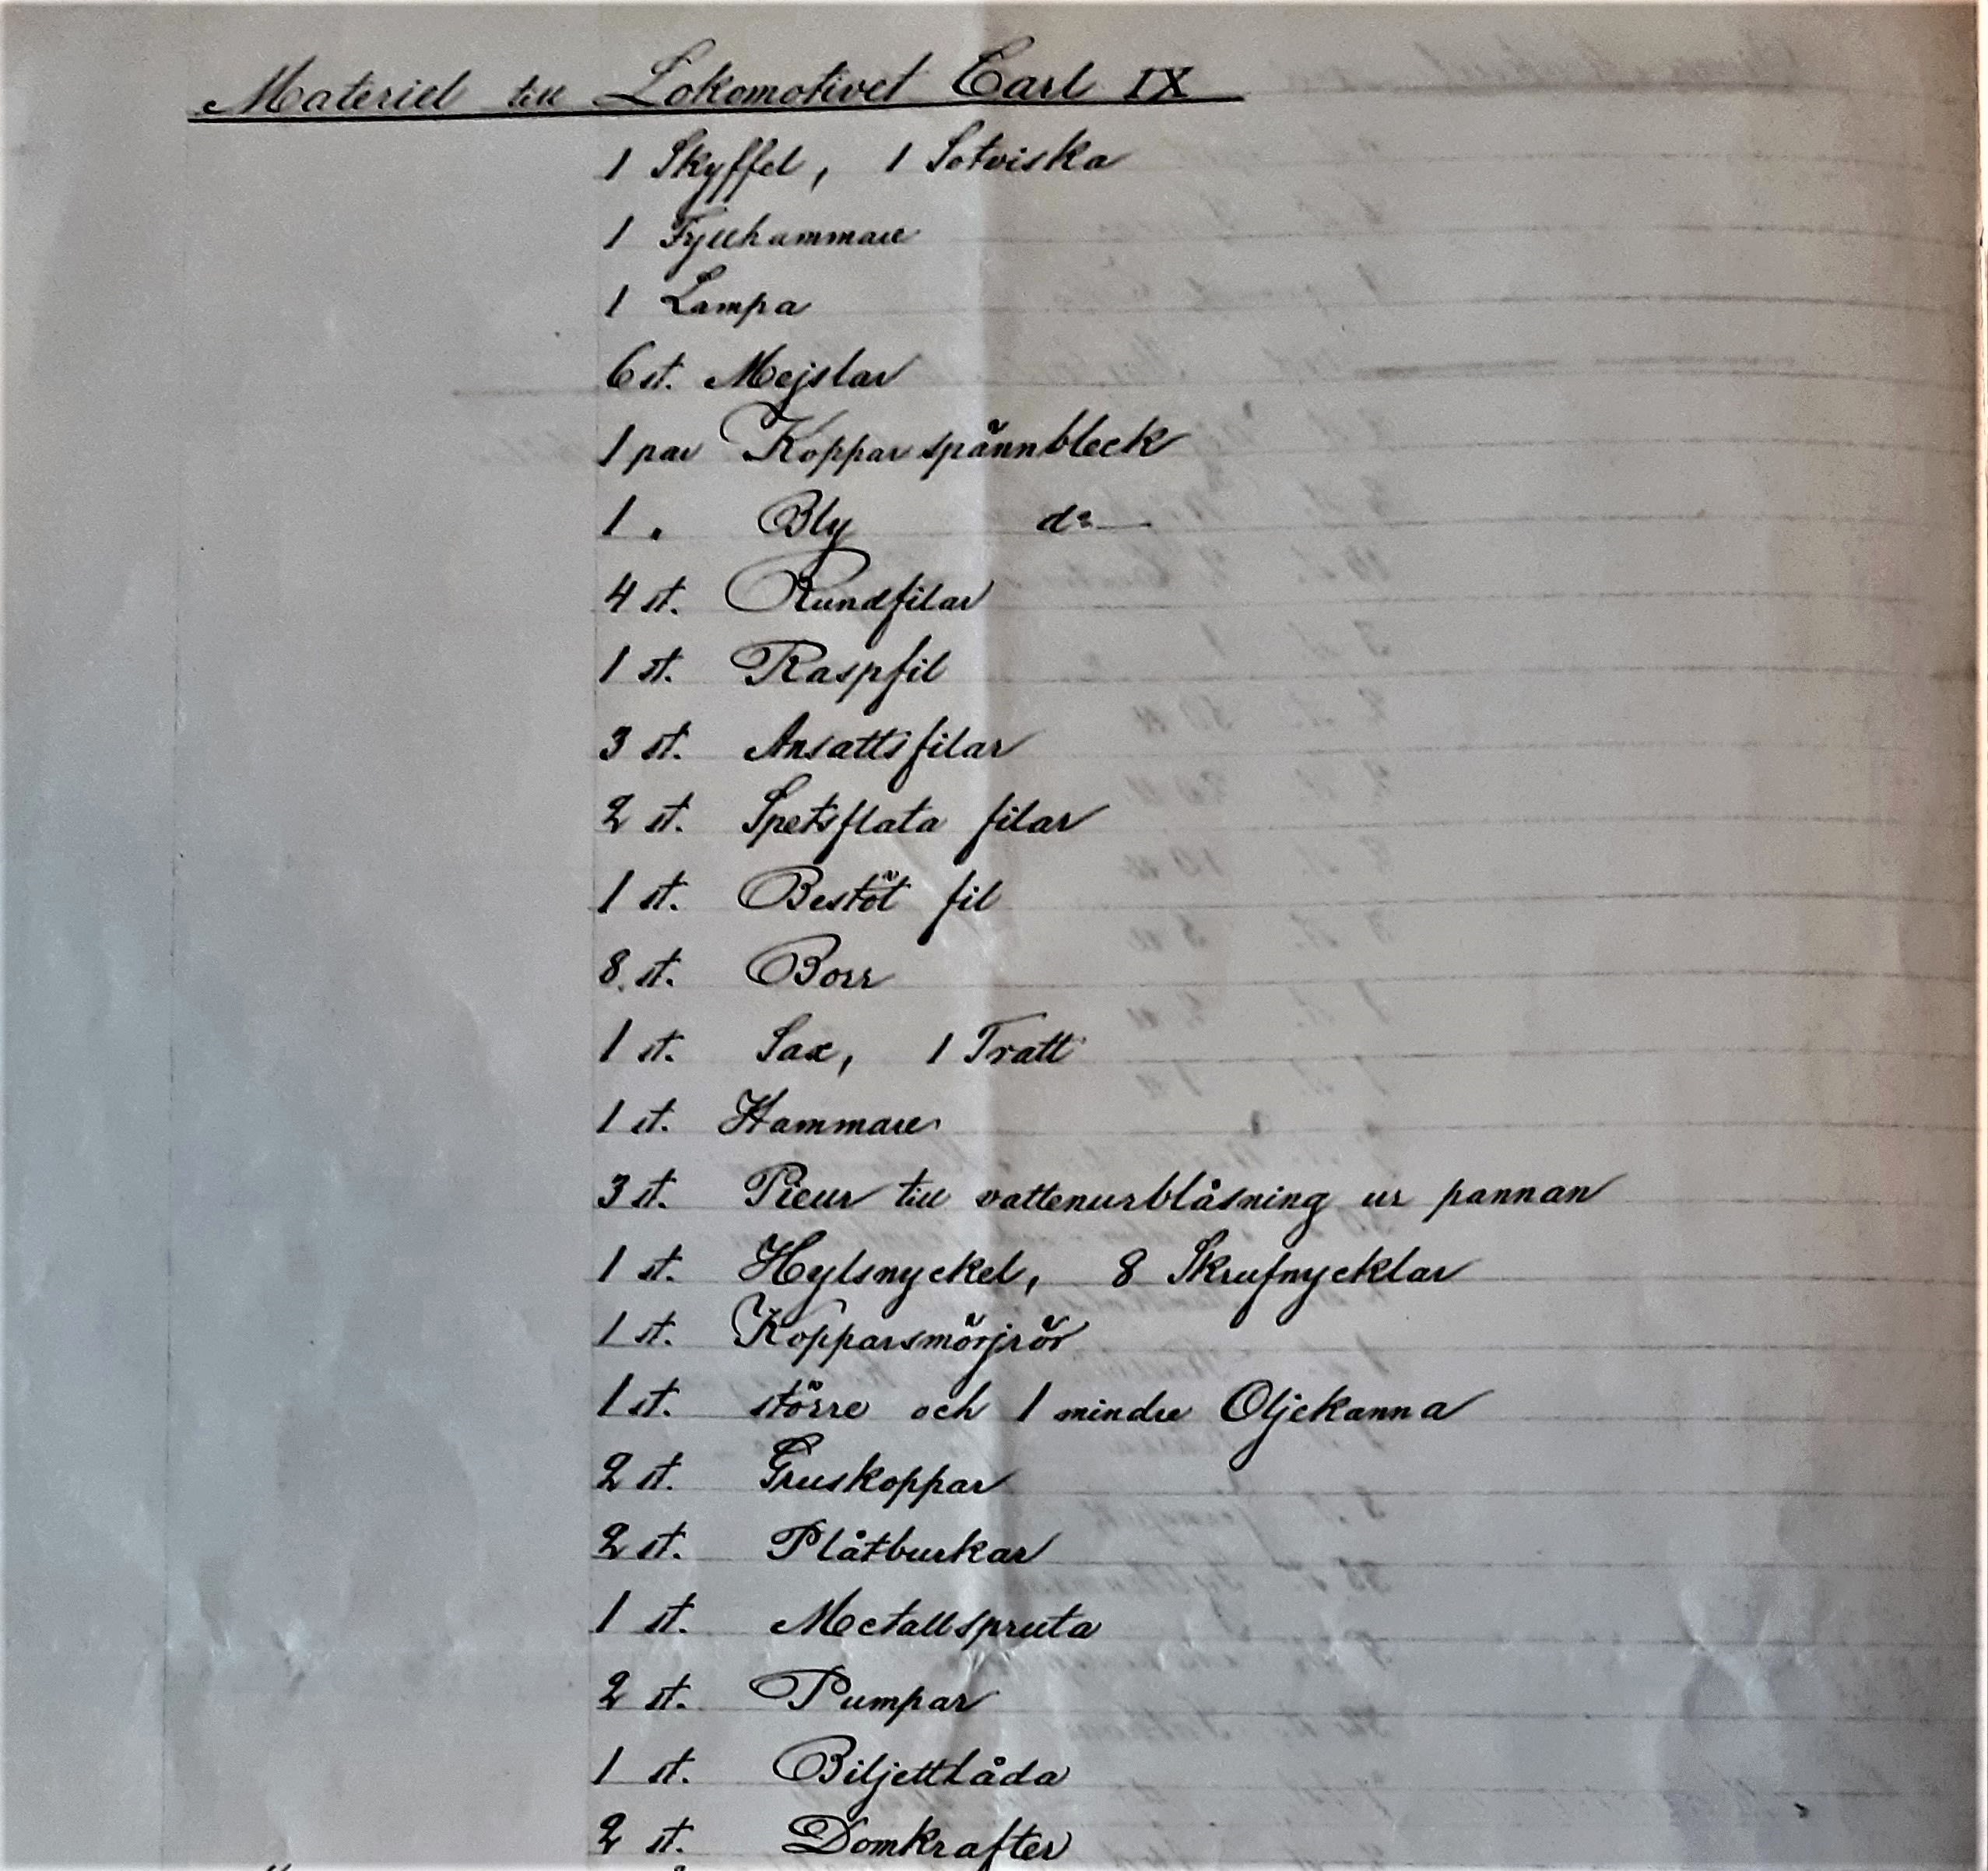 Materiel till Lokomotivet Carl IX
1 Skyffel, 1 Sotviska
1 Fyllhammare
1 Lampa
6 st. Mejslar
1 par Koppar spännbleck
1 " Bly do
4 st. Rundfilar
1 st. Raspfil
3 st. Ansattsfilar
2 st. Spetsflata filar
1 st. Bestöt fil
8 st. Borr
1 st. Sax, 1 Tratt
1 st. Hammare
3 st. till vattenurblåsning ur pannan
1 st. Hylsnyckel, 8 Skrufnycklar
1 st. Kopparsmörjrör
1 st. större och 1 mindre Oljekanna
2 st. Gruskoppar
2 st. Plåtburkar
1 st. Metallspruta
2 st. Pumpar
1 st. Biljettlåda
2 st. Domkrafter